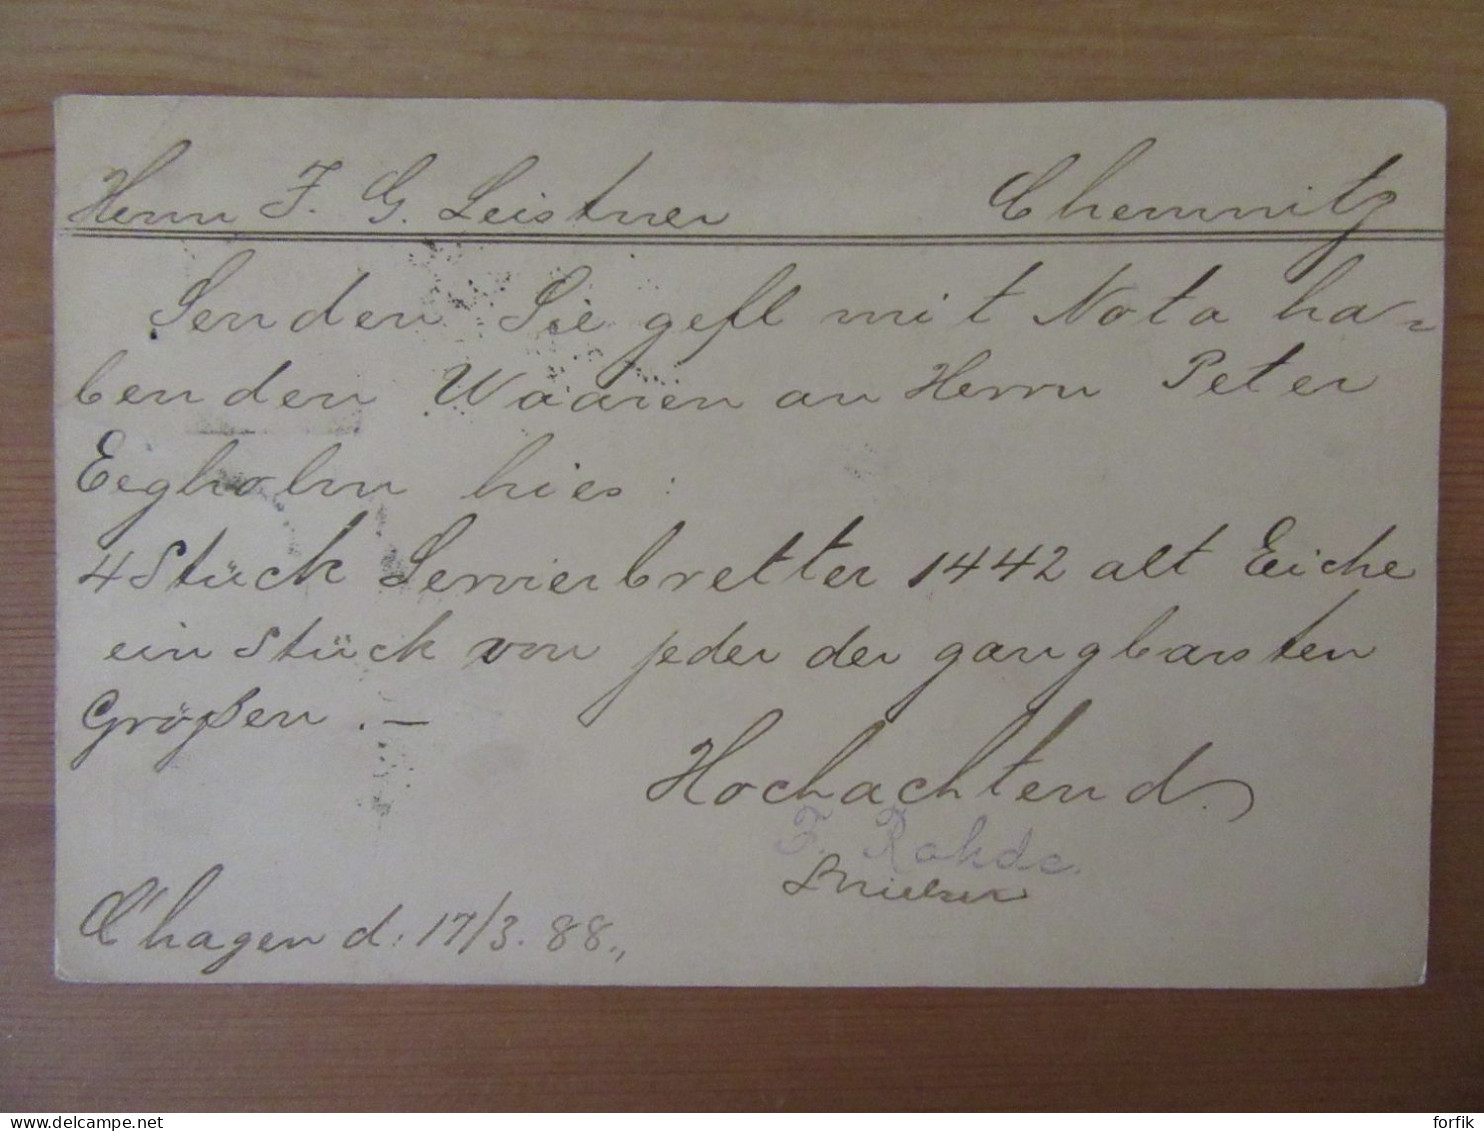 Herrn F. G. Leistner Chemnitz
Senden Sie gefl mit Nota ha-
benden Waaren an Herrn Peter
Eegholm hies:
4 Stück Servierbretter 1442 alt Eiche
ein Stück von jeder der gangbarsten
Größen. —
Hochachtend
F. Rohde.
C'hagen d. 17/3. 88.,
forfik